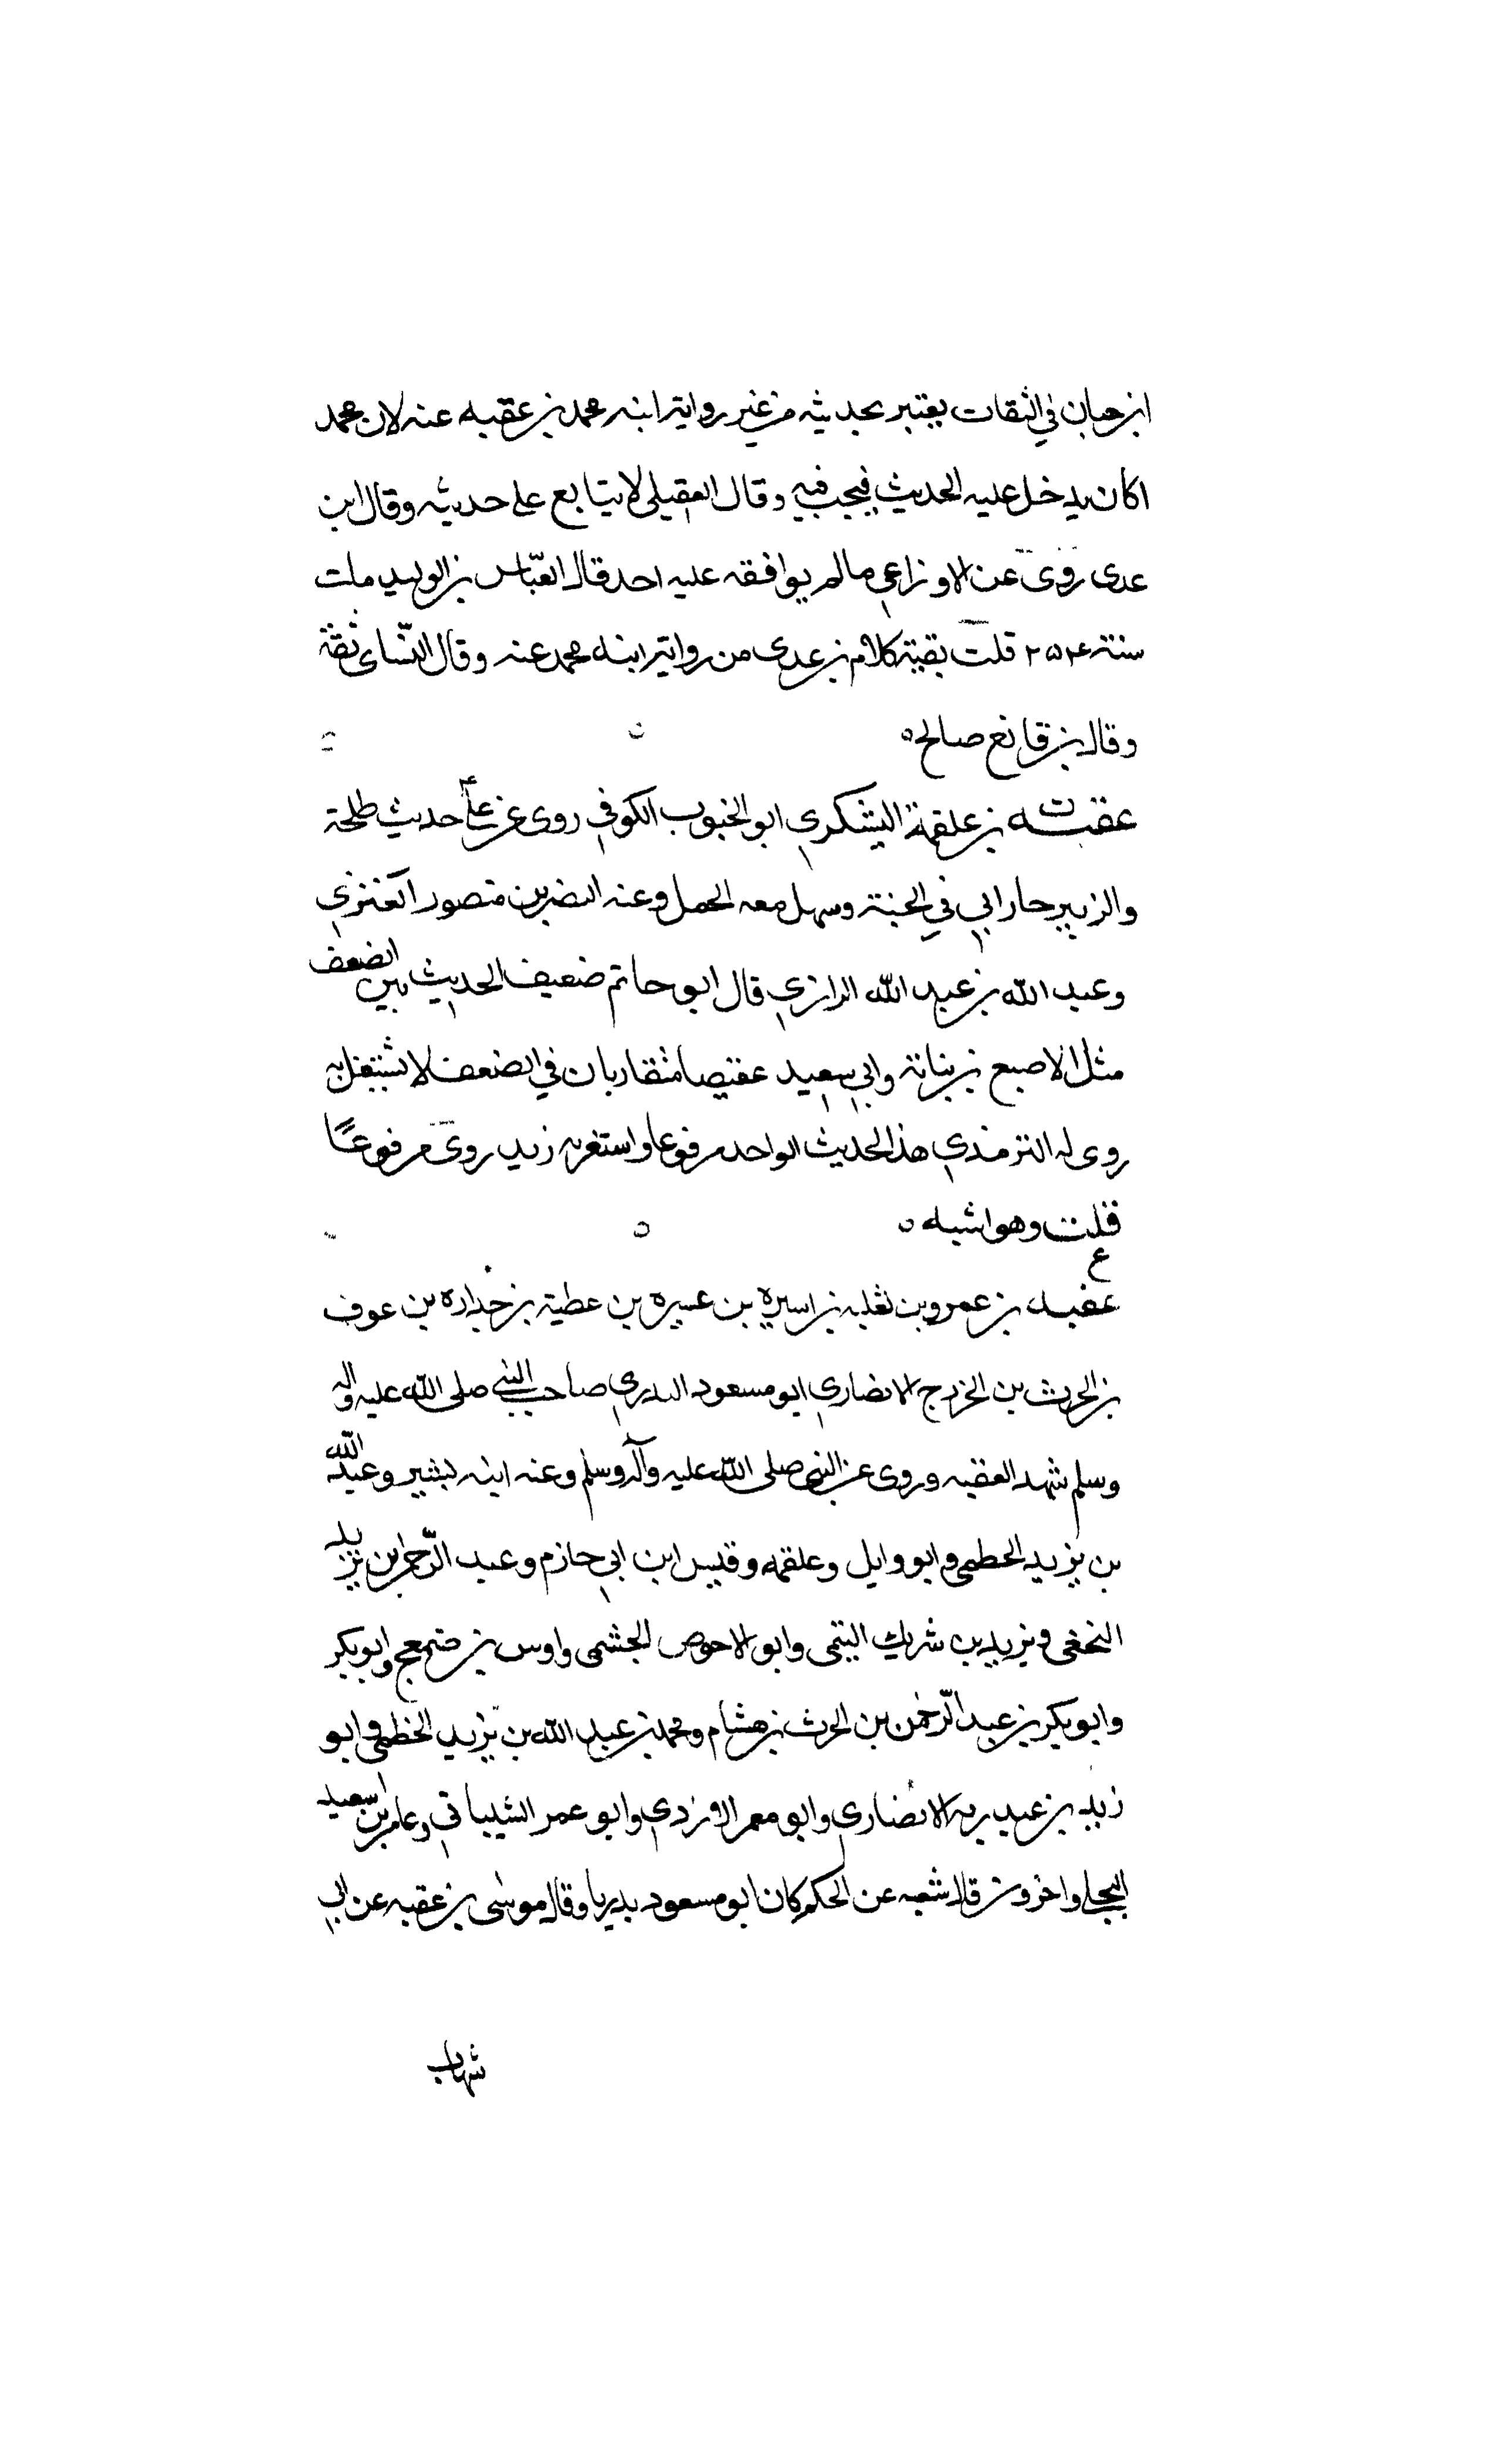 ابن حبان في الثقات يعتبر بحديثه من غير رواية ابنه محمد بن عقبه عنه لان محمد
اكان يدخل عليه الحديث فيجب فيه وقال العقيلى لا يتابع على حديثه وقال ابن
عدى روى عن الاوزاعي مالم يوافقه عليه احد قال العبّاس بن الوليد مات
سنة ٢٥٤ قلت بقية كلام بن عدى من رواية ابنه محمد عنه وقال النّسائى ثقة
وقال بن قانع صالح ٥
عقبـــه بن علقمة اليشكري ابو الجنوب الكوفي روى عن علي حديث طلحة
والزبير جاراي في الجنة وسهل معه الجمل وعنه النضر بن منصور العنزي
وعبد الله بن عبد الله الرازي قال ابو حاتم ضعيف الحديث بين الضعف
مثل الاصبع بن نباتة وابي سعيد عقيصا متقاربان في الضعف لا تشتغل به
روى له الترمذي هذا الحديث الواحد مرفوعا واستغربه زيد روى مرفوعًا
قلت وهو اشبه ٥
ع
عقبـه بن عمرو بن ثعلبه بن اسيره بن عسيره بن عطية بن جداره بن عوف
بن الحرث بن الخزرج الانصاري ابو مسعود البدري صاحب النبي صلى الله عليه واله
وسلم شهد العقبه وروى عن النبي صلى الله عليه وآله وسلم وعنه ابنه بشير وعبد الله
بن يزيد الخطمى وابو وايل وعلقمه وقيس ابن ابي حازم وعبد الرّحمن بن يزيد
النخعي ويزيد بن شريك التيمى وابو الاحوص الجشمى واوس بن ضمعج وابو بكر
وابو بكر بن عبد الرّحمن بن الحرث بن هشام ومحمد بن عبد الله بن يزيد الخطمى وابو
زيد بن عبد ربه الانصارى وابو معمر الازدي وابو عمر الشيباني وعامر بن سعيد
البجلي واخرون قال شعبه عن الحكم كان ابو مسعود بدريا وقال موسى بن عقبه عن ابي
شهاب